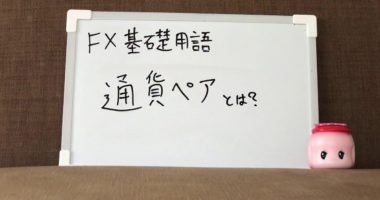 FX基礎用語
通貨ペアとは?